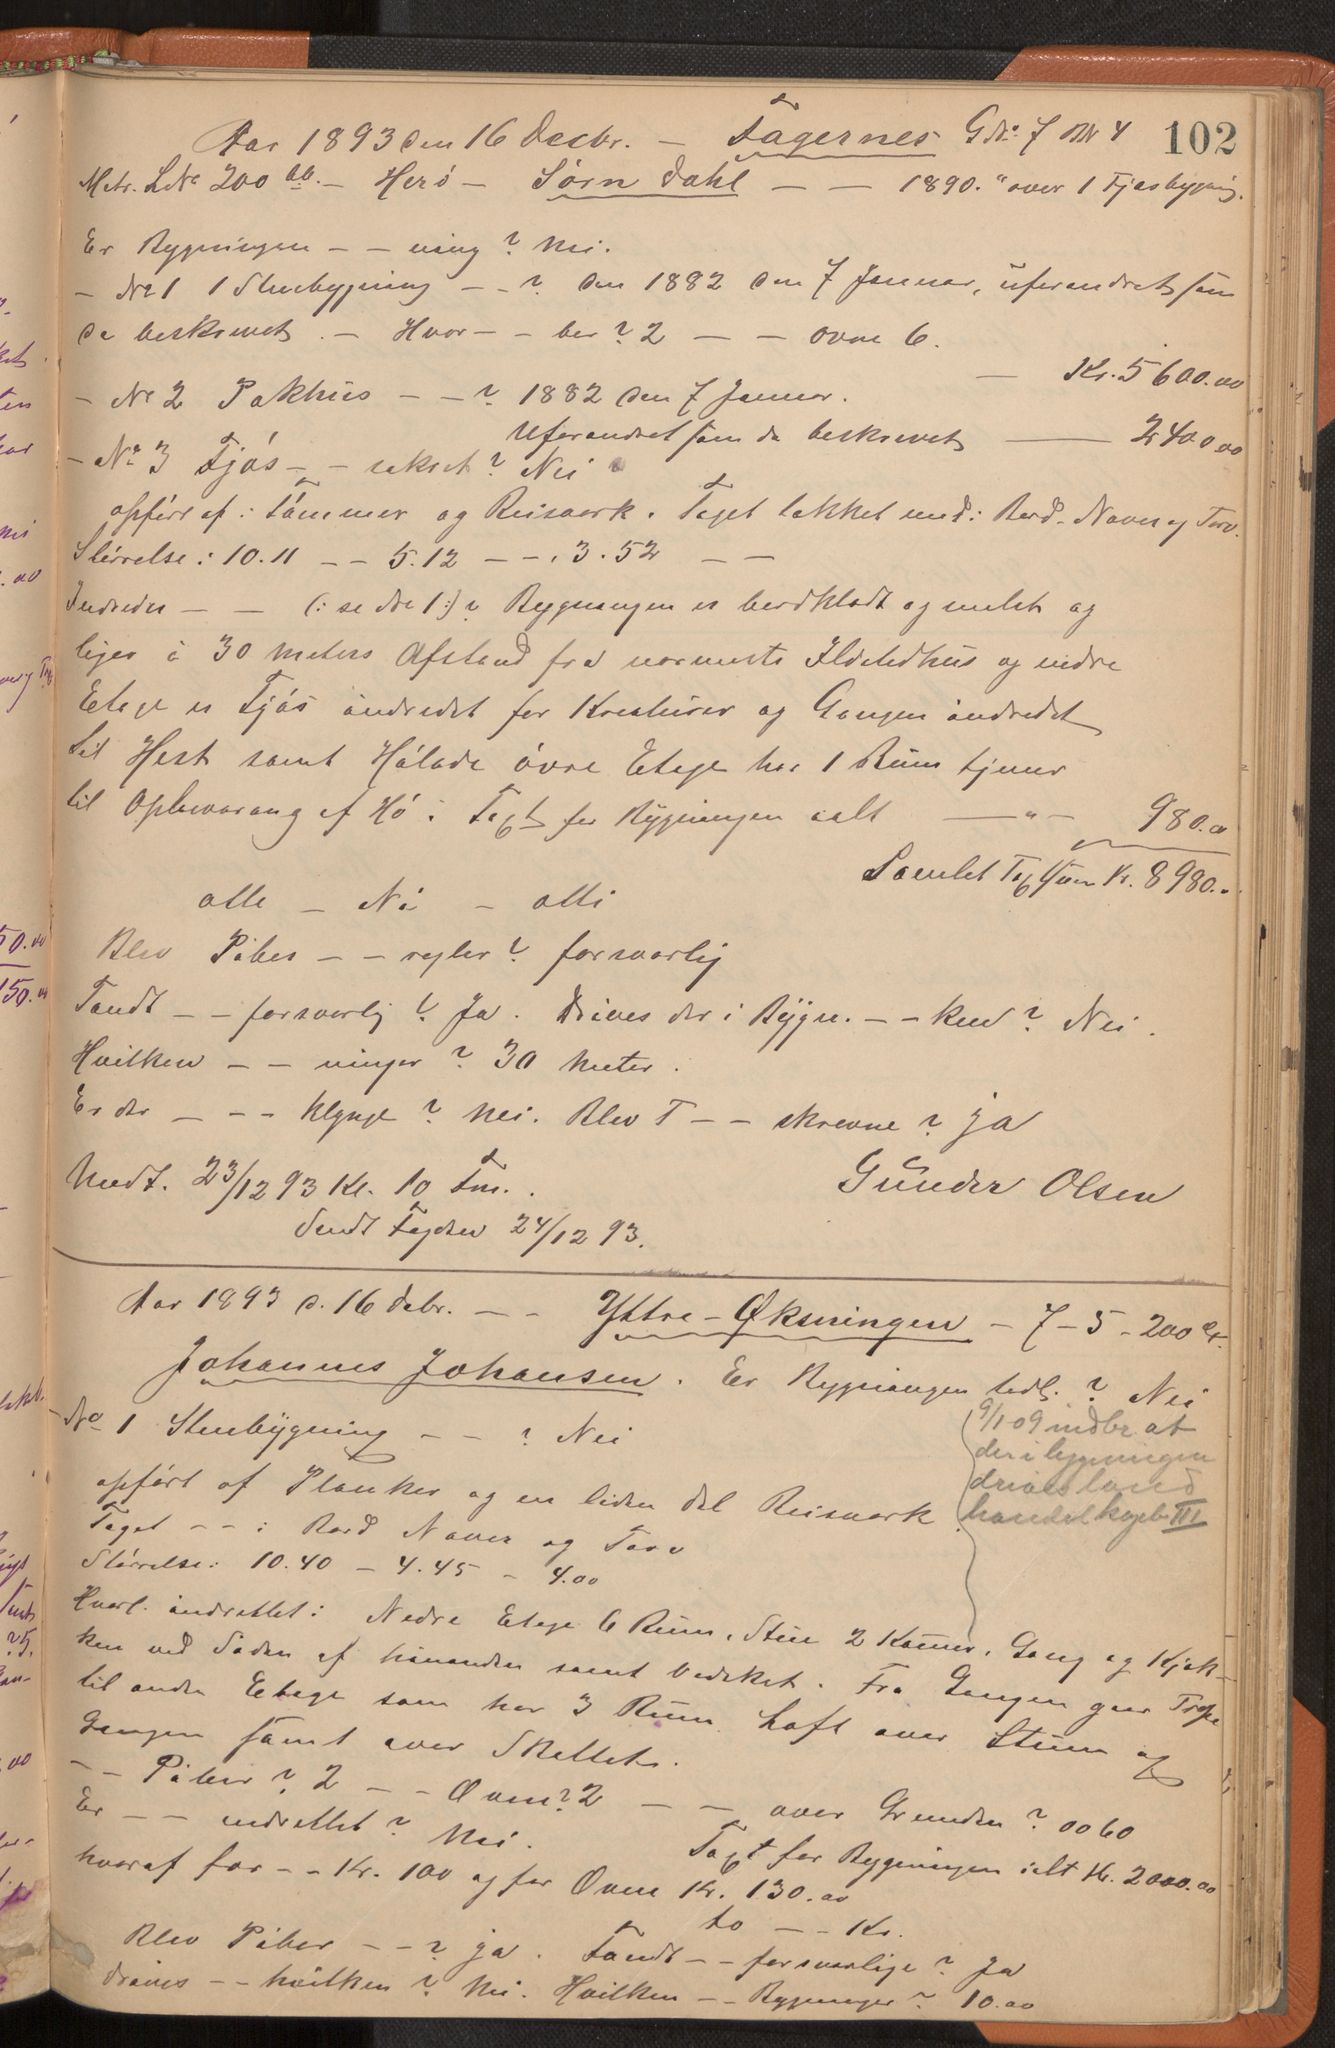 102
Aar 1893 den 16 Decbr. – Fagernes GNo 7 BN 4
Matr. LNo 200 bb. – Herö – Sörn Dahl – – 1890. " over 1 Fjøsbygnig.
Er Bygningen – – ning? Nei.
– No 1 1 Stuebygning – – ? den 1882 den 7 Januar, uforandret som
da beskrevet. – Hvor – – ber? 2 – – ovne 6.
– Kr. 5600.00
– No 2 Pakhus – – ? 1882 den 7 Januar.
Uforandret som da beskrevet – 2400.00
– No 3 Fjös – – sikret? Nei
opfört af: Tömmer og Reisverk. Taget tækket med: Bord. Never og Torv.
Störrelse: 10.11 – – 5.12 – – . 3.52 – –
Indredes – – (: se No 1 :)? Bygningen er bordklædt og malet og
liger i 30 meters Afstand fra nærmeste Ildstedhus og nedre
Etage er Fjös indredet for Kreaturer og Gangen indredet
til Hest samt Hölade övre Etage har 1 Rum tjener
til Opbevaring af Hö. Taxt for Bygningen ialt – " – 980.00
Samlet Taxtsum Kr. 8980.00
alle – Ni – atti
Blev Piber – – regler? forsvarlig
Fandt – – forsvarlig? Ja. Drives der i Bygn. – – ken? Nei.
Hvilken – – ninger? 30 Meter.
Er der – – – klynge? Nei. Blev T – – skrevne? ja
Modt. 23/12 93 Kl. 10 Fm.
Gunder Olsen
Sendt 24/12 93.
Aar 1893 d. 16 Debr. – – Yttre-Øksningen – 7 – 5 – 200
Johannes Johansen. Er Bygningen tidl.? Nei
No 1 Stuebygning – – ? Nei
9/1 09 indbr. at
der i bygningen
drives land
handel III
opfört af Planker og en liden del Reisverk.
Taget – – : Bord Never og Torv
Störrelse: 10.40 – 4.45 – 4.00
Hvorl. indrettet: Nedre Etage 6 Rum. Stue 2 Kamer, Gang og Kjøk–
ken ved Siden af hinanden samt bedsket. Fra Gangen gaar Trape
til anden Etage som har 3 Rum Loft over Stuen og
Gangen samt over Skottet.
– – Piber? 2 – – Ovne? 2 – – over Grunden? 0060
Er – – indrettet? Nei. Taxt for Bygningen ialt Kr. 2000.00
hvoraf for – – Kr. 100 og for Ovne Kr. 130.00
to – – Kr.
Blev Piber – – ? ja. Fandt – – forsvarlige? Ja
Drives – – hvilken? Nei. Hvilken – – Bygninger? 10.00